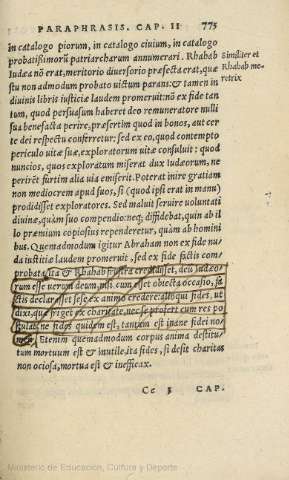 PARAPHRASIS. CAP. II 775
in catalogo piorum, in catalogo ciuium, in catalogo
probatißimorũ patriarcharum annumerari. Rhahab
Similiter et
Rhahab me⸗
retrix
Iudæa nõ erat, meritorio diuersorio præfecta erat, quæ
stu non admodum probato uictum parans: & tamen in
diuinis libris iustitiæ laudem promeruit: nõ ex fide tan
tum, quod persuasum haberet deo remuneratore nulli
sua benefacta perire, præsertim quod in bonos, aut cer
te dei respectu conferretur: sed ex eo, quod contempto
periculo uitæ suæ, exploratorum uitæ consuluit: quod
nuncios, quos exploratum miserat dux Iudæorum, ne
perirẽt furtim alia uia emiserit. Poterat inire gratiam
non mediocrem apud suos, si (quod ipsi erat in manu)
prodidisset exploratores. Sed maluit seruire uoluntati
diuinæ, quàm suo compendio: neq; diffidebat, quin ab il
lo præmium copiosius rependeretur, quàm ab homini
bus. Quemadmodum igitur Abraham non ex fide nu⸗
da iustitiæ laudem promeruit, sed ex fide factis com⸗
probata: ita & Rhahab frustra credidisset, deũ Iudæo⸗
rum esse uerum deum, nisi cum esset obiecta occasio, fa
ctis declarasset sese ex animo credere: alioqui fides, ut
dixi, quæ friget ex charitate, nec se profert cum res po
stulat, ne fides quidem est, tantum est inane fidei no⸗
men. Etenim quemadmodum corpus anima destitu⸗
tum mortuum est & inutile, ita fides, si desit charitas
non ociosa, mortua est & inefficax.
Cc 3 CAP.
Ministerio de Educación, Cultura y Deporte